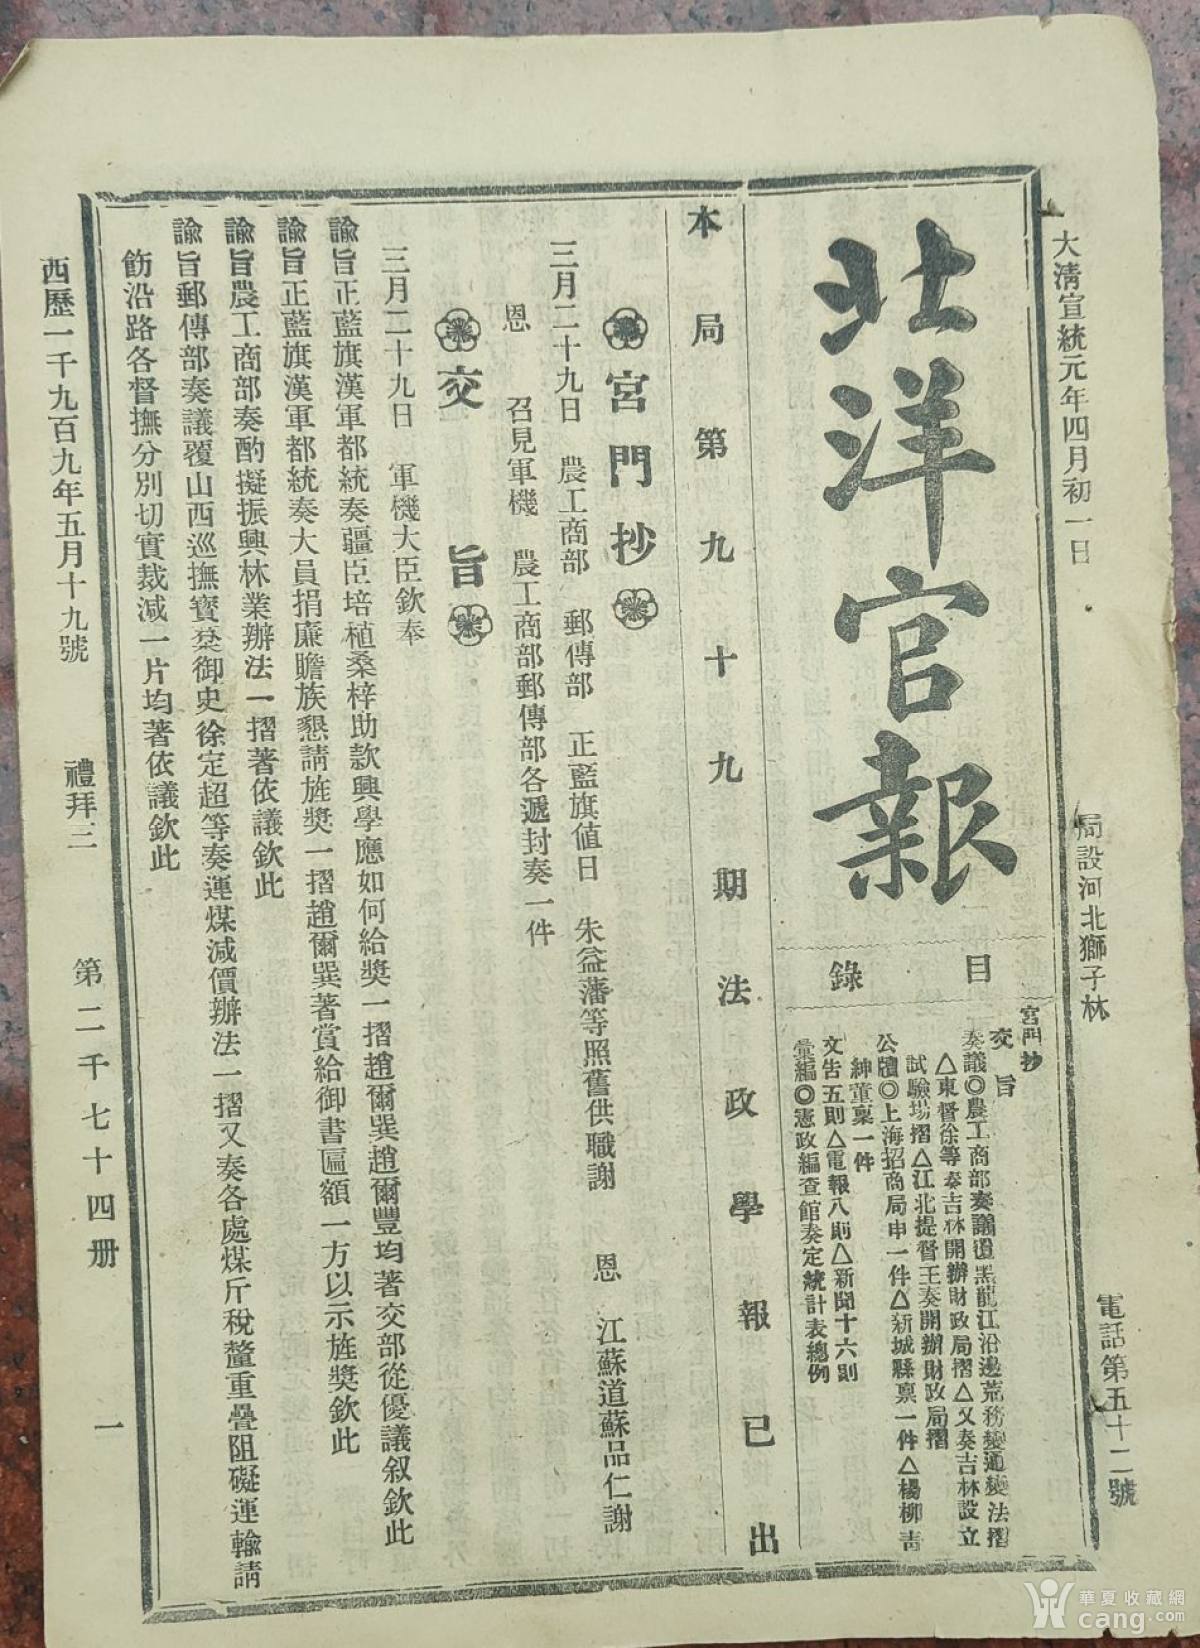 大清宣統元年四月初一日　局設河北獅子林　電話第五十二號
北洋官報
目錄
宮門抄
交旨
奏議◎農工商部奏議覆黑龍江沿邊荒務變通變法摺
△東督徐等奏吉林開辦財政局摺△又奏吉林設立
試驗場摺△江北提督王奏開辦財政局摺
公牘◎上海招商局申一件△新城縣稟一件△楊柳青
紳董稟一件
文告五則△電報八則△新聞十六則
彙編◎憲政編查館奏定統計表總例
本局第九十九期法政學報已出
宮門抄
三月二十九日　農工商部　郵傳部　正藍旗値日　朱益藩等照舊供職謝　恩　江蘇道蘇品仁謝
恩　召見軍機　農工商部郵傳部各遞封奏一件
交旨
三月二十九日　軍機大臣欽奉
諭旨正藍旗漢軍都統奏疆臣培植桑梓助款興學應如何給獎一摺趙爾巽趙爾豐均著交部從優議叙欽此
諭旨正藍旗漢軍都統奏大員捐廉贍族懇請旌獎一摺趙爾巽著賞給御書匾額一方以示旌獎欽此
諭旨農工商部奏酌擬振興林業辦法一摺著依議欽此
諭旨郵傳部奏議覆山西巡撫寶棻御史徐定超等奏運煤減價辦法一摺又奏各處煤斤稅釐重疊阻礙運輸請
飭沿路各督撫分別切實裁減一片均著依議欽此
西歷一千九百九年五月十九號　禮拜三　第二千七十四册　一
華夏收藏網
cang.com